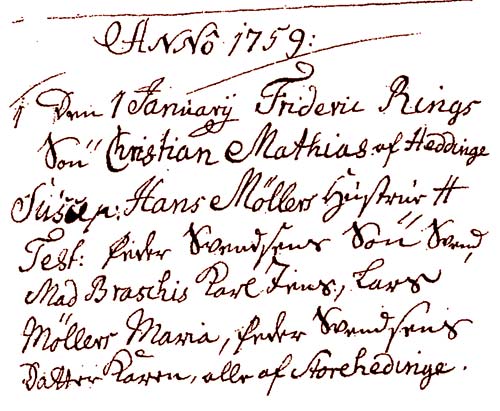 ANNO 1759:
1 Den 1 Januarÿ Frideric Rings
Søn Christian Mathias af Heddinge
Suscep: Hans Møllers Hustrue #
Test: Peder Svendsens Søn Svend,
Mad Braschis Karl Jens, Lars
Møllers Maria, Peder Svendsens
Datter Karen, alle af Storehedinge.